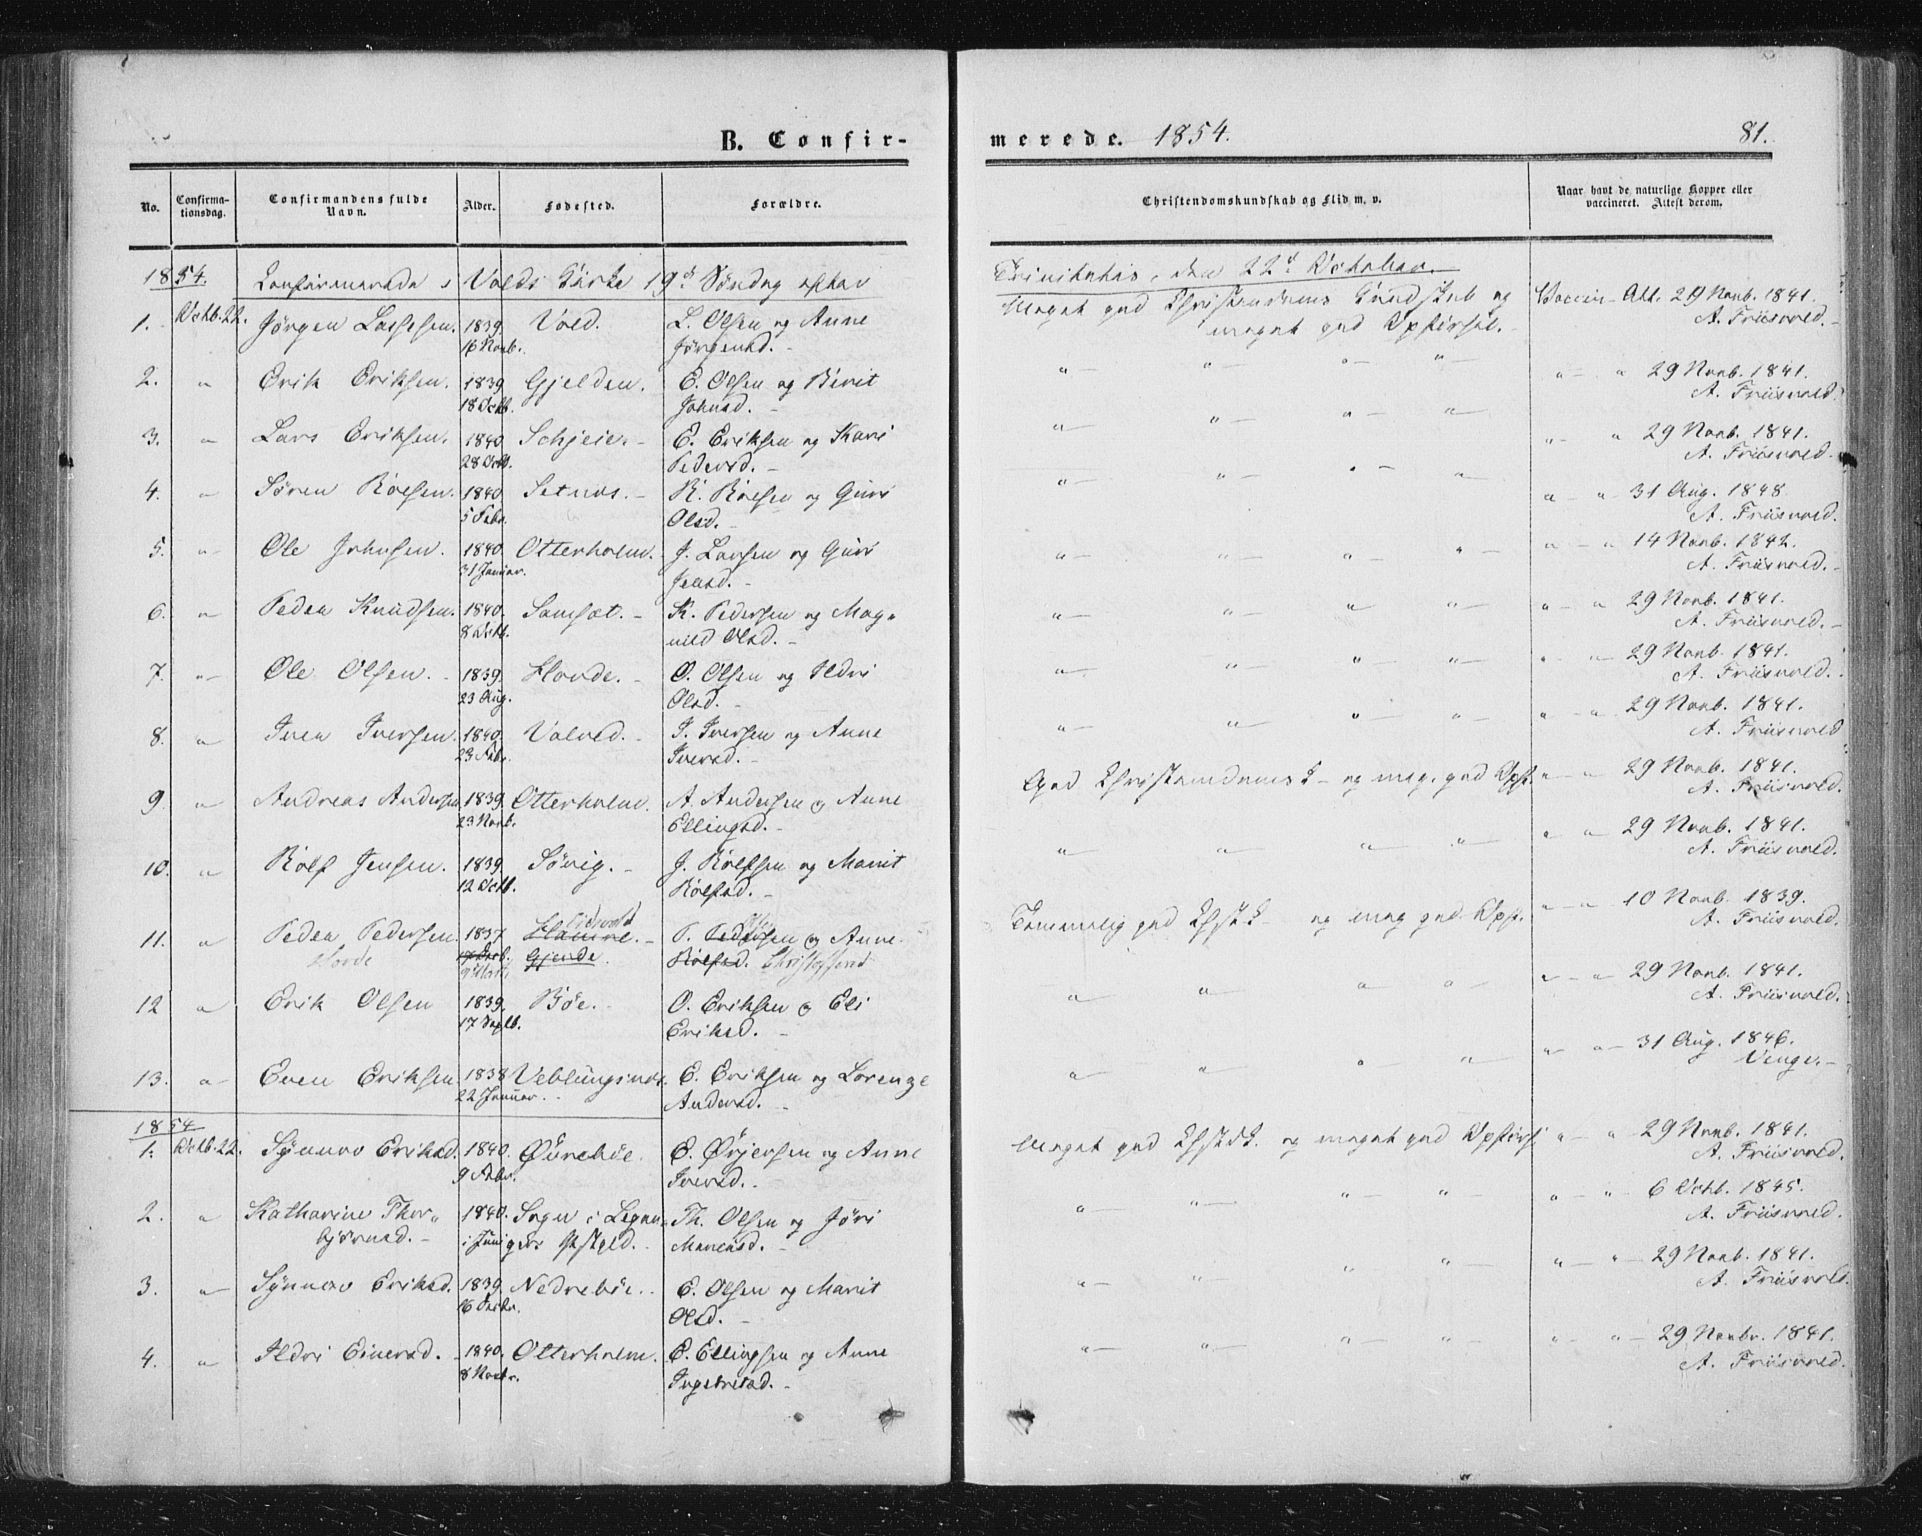 B. Confirmerede. 1854. 81.
No. Confirmationsdag. Confirmandens fulde Navn. Alder. Fødested. Forældre. Christendomskundskab og Flid m. v. Naar havt de naturlige Kopper eller vaccineret. Attest derom.
1854. Confirmerede i Volds Kirke 19de Søndag efter Trinitatis, den 22de October.
1. Octb. 22. Jørgen Lassesen. 1839 Vold. L. Olsen og Anne Meget god Christendoms Kundskab og Vaccin. Att. 29 Novb. 1841.
16 Novb. Jørgensd. - meget god Opførsel. - A. Friisvold. -
2. " Erik Eriksen. 1839 Gjelden. E. Olsen og Birit " " " " " - " 29 Novb. 1841.
18 Octb. Johnsd. - A. Friisvold.
3. " Lars Eriksen. 1840 Schjeie. - E. Eriksen og Kari " " " " " - " 29 Novb. 1841.
28 Octb. Pedersd. - A. Friisvold.
4. " Søren Roelsen. 1840 Setnes. - R. Roelsen og Guri " " " " " - " 31 Aug. 1848.
5 Febr. Olsd. - A. Friisvold.
5. " Ole Johnsen. 1840. Otterholm. J. Larsen og Guri " " " " " - " 14 Novb. 1842.
31 Januar. Jensd. - A. Friisvold. -
6. " Peder Knudsen. 1840. Samsæt. - K. Pedersen og Mag- " " " " " - " 29 Novb. 1841.
8 Octb. nild Olsd. - A. Friisvold. -
7. " Ole Olsen. - 1839. Hovde. - O. Olsen og Ildri " " " " " - " 29 Novb. 1841.
23 Aug. Olsd. - A. Friisvold.
8. " Iver Iversen. 1840. Volvd. - I. Iversen og Anne " " " " " - " 29 Novb. 1841.
23 Febr. Iversd. - A. Friisvold
9. " Andreas Andersen 1839. Otterholm. A. Andersen og Anne God Christendoms K - og meg. god Opf. " - " 29 Novb. 1841.
23 Novb. Ellingsd. - A. Friisvold.
10. " Rolf Jensen. 1839. Sövig. - J. Rolfsen og Marit " " " " " " - 29 Novb. 1841.
12 Octb. Rolfsd. - A. Friisvold.
11. " Peder Pedersen. 1837 P. Pedersen og Anne Temmelig god Chst. K - og meg god Opf. " - " 10 Novb. 1839.
Hovde Gjende. Rolfsd. Christophersd A. Friisvold.
12 " Erik Olsen 1839. Böe. - O. Eriksen og Eli " " " " " - " 29 Novb. 1841.
17 Septb. Eriksd. - A. Friisvold.
13. " Even Eriksen. 1838 Veblungsnes. E. Eriksen og Lorenze " " " " " - " 31 Aug. 1846.
22 Januar. - Andersd. - Venge. -
1854
1. Octb. 22. Synnov Eriksd. 1840. Øvrebøe. E. Ørjersen og Anne Meget god Chstd K. og meget god Opførsl " - " 29 Novb. 1841.
9 Febr. Iversd. - A. Friisvold.
2. " Katharine Thor- 1840. Sogn i Th. Olsen og Jöri " " " " " - " 6 Octb. 1845.
björnsd. - 1 Juni A. Friisvold.
3. " Synnov Eriksd. 1839. Nedrebøe. E. Olsen og Marit " " " " " " - 29 Novb. 1841.
Olsd. A. Friisvold.
4. " Ildri Einersd. 1840. Otterholm. E. Ellingsen og Anne " " " " " " - 29 Novbr. 1841.
8 Novbr. Ingebretsd. - A. Friisvold.